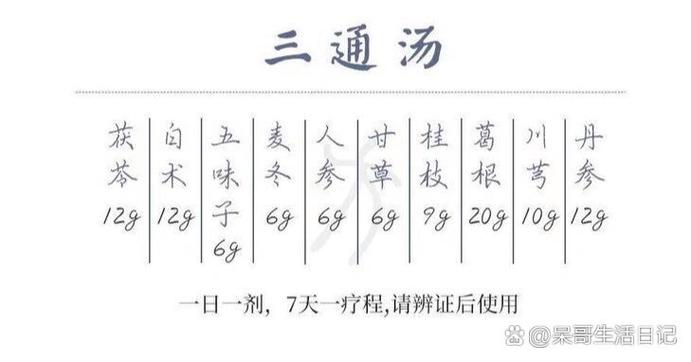 三通汤
丹参 12g
川芎 10g
葛根 20g
桂枝 9g
甘草 6g
人参 6g
麦冬 6g
五味子 6g
白术 12g
茯苓 12g
一日一剂，7天一疗程,请辨证后使用
呆哥生活日记